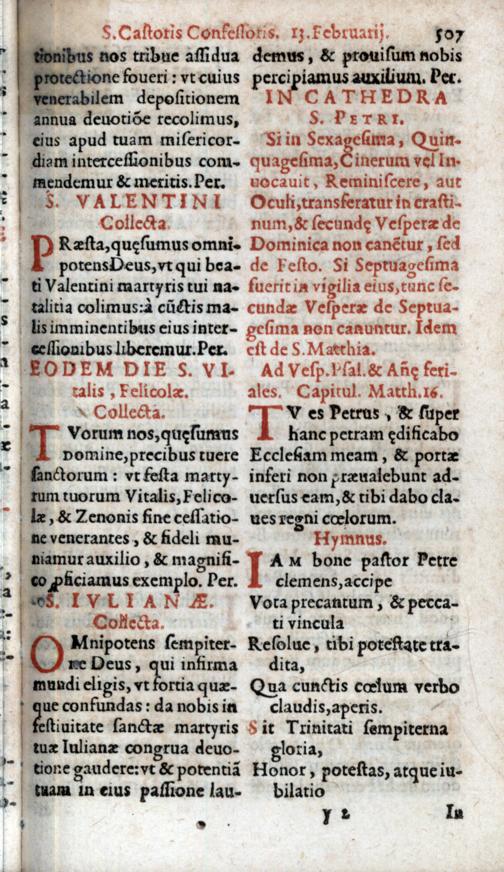 S. Castoris Confessoris. 13. Februarij. 507
tionibus nos tribue assidua
protectione foueri : vt cuius
venerabilem depositionem
annua deuotiõe recolimus,
eius apud tuam misericor-
diam intercessionibus com-
mendemur & meritis. Per.
S. VALENTINI
Collecta.
PRæsta, quęsumus omni-
potens Deus, vt qui bea-
ti Valentini martyris tui na-
talitia colimus: à cũctis ma-
lis imminentibus eius inter-
cessionibus liberemur. Per.
EODEM DIE S. VI-
talis , Felicolæ.
Collecta.
TVorum nos, quęsumus
Domine, precibus tuere
sanctorum : vt festa marty-
rum tuorum Vitalis, Felico-
læ, & Zenonis sine cessatio-
ne venerantes , & fideli mu-
niamur auxilio , & magnifi-
co ꝓficiamus exemplo. Per.
S. IVLIANÆ.
Collecta.
OMnipotens sempiter-
næ Deus, qui infirma
mundi eligis, vt fortia quæ-
que confundas : da nobis in
festiuitate sanctæ martyris
tuæ Iulianæ congrua deuo-
tione gaudere: vt & potentiã
tuam in eius passione lau-
demus , & prouisum nobis
percipiamus auxilium. Per.
IN CATHEDRA
S. PETRI.
Si in Sexagesima , Quin-
quagesima, Cinerum vel In-
uocauit , Reminiscere, aut
Oculi, transferatur in crasti-
num, & secundę Vesperæ de
Dominica non canẽtur , sed
de Festo. Si Septuagesima
fuerit in vigilia eius, tunc se-
cundæ Vesperæ de Septua-
gesima non canuntur. Idem
est de S. Matthia.
Ad Vesp. Psal. & Añę feri-
ales. Capitul. Matth. 16.
TV es Petrus , & super
hanc petram ędificabo
Ecclesiam meam , & portæ
inferi non præualebunt ad-
uersus eam, & tibi dabo cla-
ues regni cœlorum.
Hymnus.
IAM bone pastor Petre
clemens, accipe
Vota precantum , & pecca-
ti vincula
Resolue , tibi potestate tra-
dita,
Qua cunctis cœlum verbo
claudis, aperis.
Sit Trinitati sempiterna
gloria,
Honor , potestas, atque iu-
bilatio
y 2 In